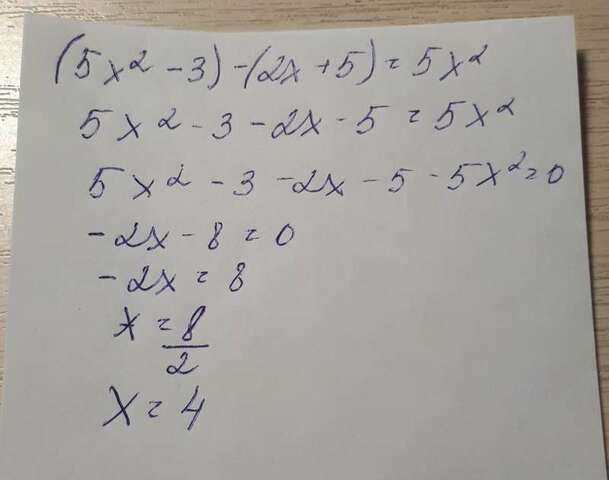 (5x² - 3) - (2x + 5) = 5x²
5x² - 3 - 2x - 5 = 5x²
5x² - 3 - 2x - 5 - 5x² = 0
- 2x - 8 = 0
- 2x = 8
x = 8/2
x = 4